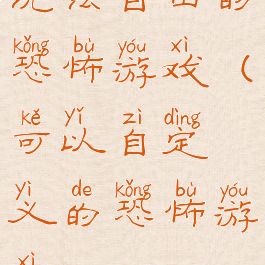 况 恐 自 由 的
kǒng bù yóu xì
恐 怖 游 戏 （
kě yǐ zì dìng
可 以 自 定
yì de kǒng bù yóu
义 的 恐 怖 游
xì